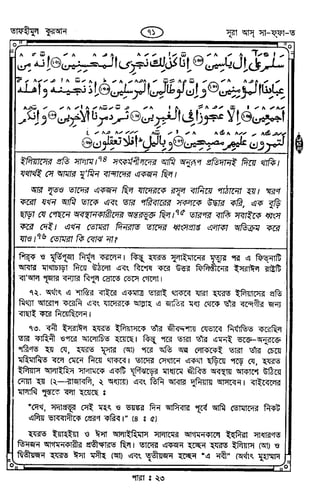 তাফহীমুল কুরআন
৭১
সূরা আস্ সা-ফ্ফা-ত
سَلٰمٌ عَلٰٓى اِلْ يَاسِيْنَ۝ اِنَّا كَذٰلِكَ نَجْزِى الْمُحْسِنِيْنَ۝ اِنَّهٗ مِنْ
عِبَادِنَا الْمُؤْمِنِيْنَ۝ وَاِنَّ لُوْطًا لَّمِنَ الْمُرْسَلِيْنَ۝ اِذْ نَجَّيْنٰهُ وَاَهْلَهٗٓ
اَجْمَعِيْنَ۝ اِلَّا عَجُوْزًا فِى الْغٰبِرِيْنَ۝ ثُمَّ دَمَّرْنَا الْاٰخَرِيْنَ۝ وَاِنَّكُمْ
لَتَمُرُّوْنَ عَلَيْهِمْ مُّصْبِحِيْنَ۝ وَبِالَّيْلِ ؕ اَفَلَا تَعْقِلُوْنَ۝
ইলিয়াসের প্রতি সালাম।৭৪ সৎকর্মশীলদের আমি অনুরূপ প্রতিদানই দিয়ে থাকি।
যথার্থই সে আমার মু’মিন বান্দাদের একজন ছিল।
আর লূতও তাদের একজন ছিল যাদেরকে রসূল বানিয়ে পাঠানো হয়। স্মরণ
করো যখন আমি তাকে এবং তার পরিবারের সকলকে উদ্ধার করি, এক বুড়ি
ছাড়া যে পেছনে অবস্থানকারীদের অন্তরভুক্ত ছিল।৭৫ তারপর বাকি সবাইকে ধ্বংস
করে দেই। এখন তোমরা দিনরাত তাদের ধ্বংসপ্রাপ্ত এলাকা অতিক্রম করে
যাও।৭৬ তোমরা কি বোঝ না?
শিরক ও মূর্তিপূজা নির্মূল করলেন। কিন্তু হযরত সুলাইমানের মৃত্যুর পর এ ফিত্নাটি
আবার মাথাচাড়া দিয়ে উঠলো এবং বিশেষ করে উত্তর ফিলিস্তীনের ইসরাঈল রাষ্ট্রটি
বা’আল পূজার বন্যার বিপুল স্রোতে ভেসে গেলো।
৭২. অর্থাৎ এ শাস্তির বাইরে একমাত্র তারাই থাকবে যারা হযরত ইলিয়াসের প্রতি
মিথ্যা আরোপ করেনি এবং যাদেরকে আল্লাহ এ জাতির মধ্য থেকে তাঁর বন্দেগীর জন্য
বাছাই করে নিয়েছিলেন।
৭৩. বনী ইসরাঈল হযরত ইলিয়াসকে তাঁর জীবদ্দশায় যেভাবে নির্যাতিত করেছিল
তার কাহিনী ওপরে আলোচিত হয়েছে। কিন্তু পরে তারা তাঁর এমনই ভক্ত-অনুরক্তে
পরিণত হয় যে, হযরত মূসার (আ) পরে অতি অল্প লোককেই তারা তাঁর চেয়ে
মহিমান্বিত বলে মেনে নিয়ে থাকবে। তাদের সেখানে একথা ছড়িয়ে পড়ে যে, হযরত
ইলিয়াস আলাইহিস সালামকে একটি ঘূর্ণিঝড়ের মাধ্যমে জীবিত অবস্থায় আকাশে উঠিয়ে
নেয়া হয় (২—রাজাবলি, ২ অধ্যায়) এবং তিনি আবার দুনিয়ায় আসবেন। বাইবেলের
মালাখি পুস্তকে বলা হয়েছে :
“দেখ, সদাপ্রভুর সেই মহৎ ও ভয়ঙ্কর দিন আসিবার পূর্বে আমি তোমাদের নিকট
এলিয় ভাববাদীকে প্রেরণ করিব।” (৪ : ৫)
হযরত ইয়াহইয়া ও ঈসা আলাইহিমাস সালামের আগমনকালে ইহুদিরা সাধারণত
তিনজন আগমনকারীর প্রতীক্ষারত ছিল। তাদের একজন হচ্ছেন হযরত ইলিয়াস (আ) ও
দ্বিতীয়জন হযরত ঈসা মসীহ (আ) এবং তৃতীয়জন হচ্ছেন “এ নবী” (অর্থাৎ মুহাম্মাদ
পারা : ২৩